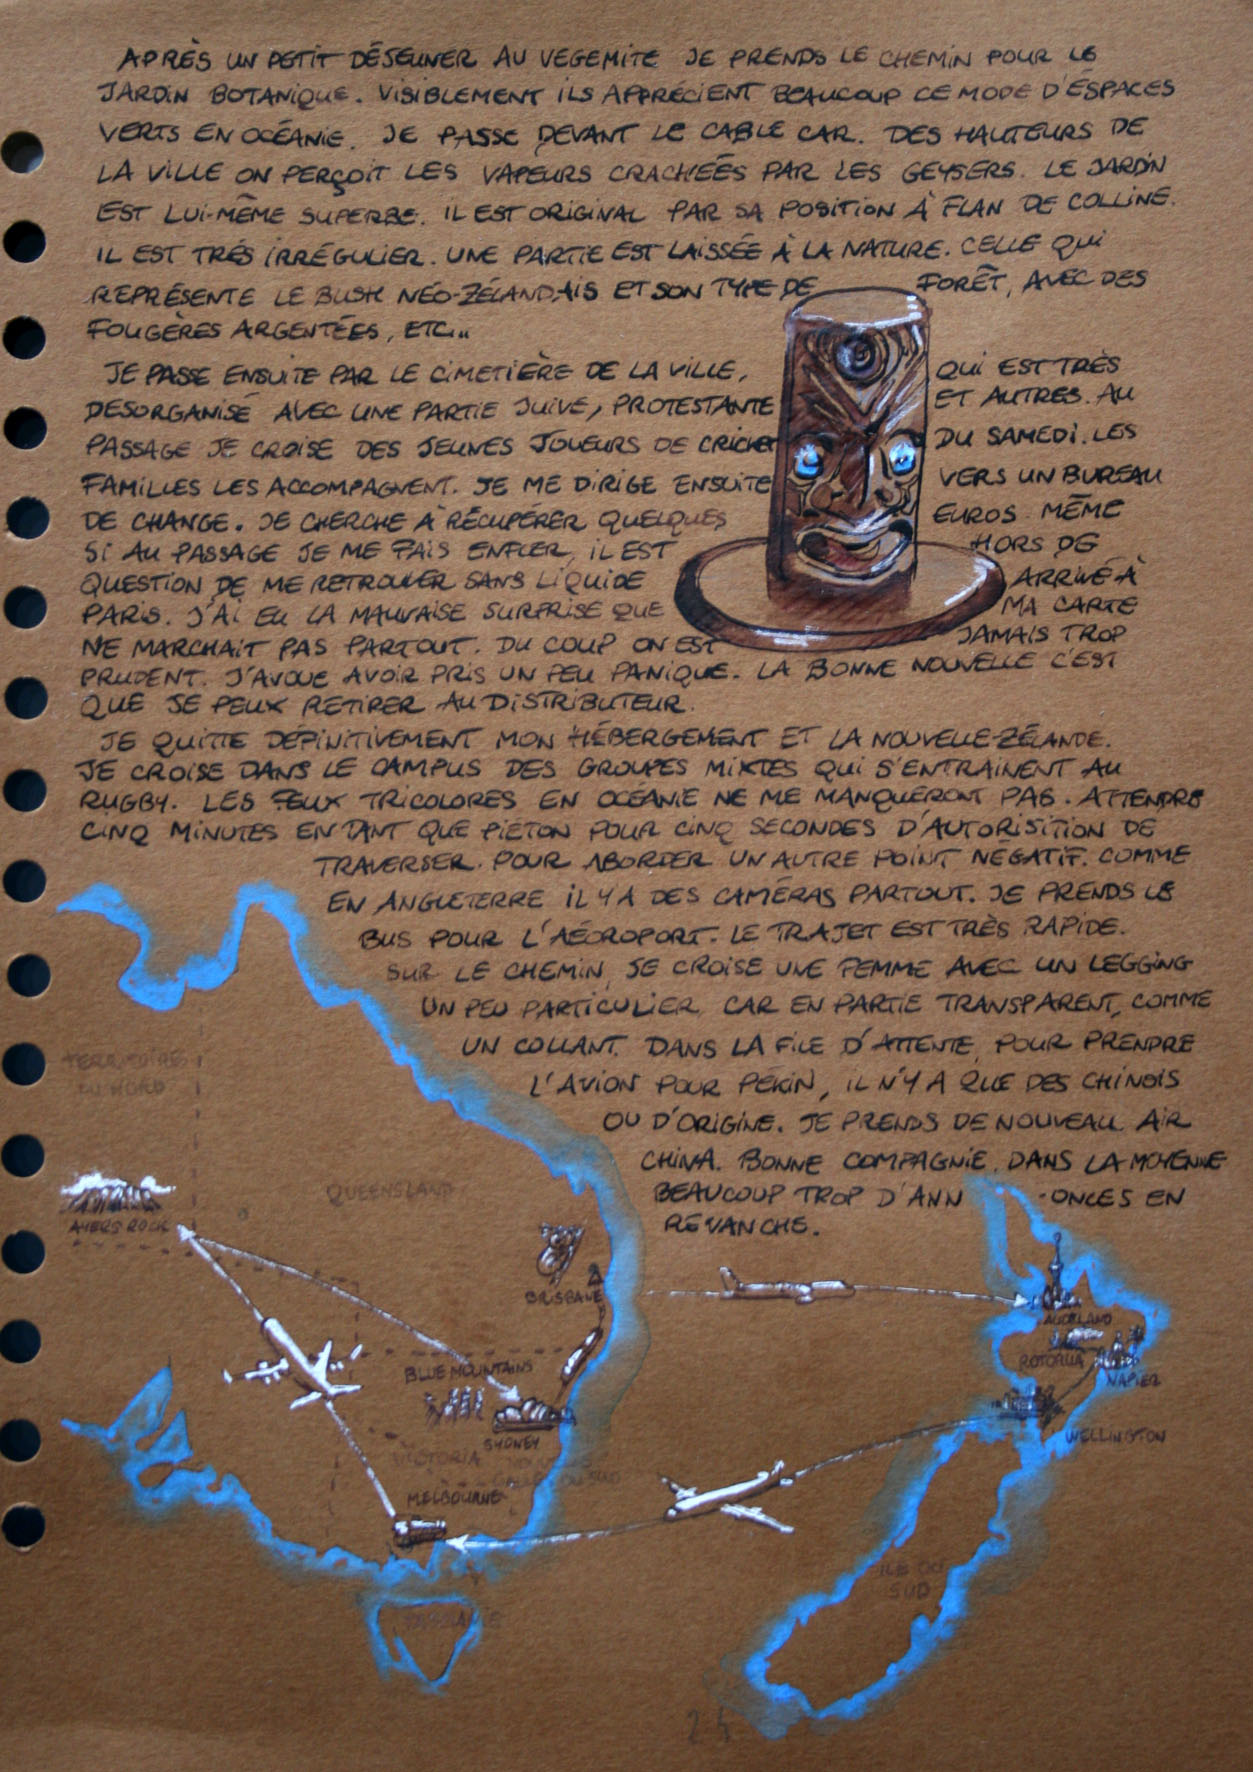 APRÈS UN PETIT DÉJEUNER AU VEGEMITE JE PRENDS LE CHEMIN POUR LE
JARDIN BOTANIQUE. VISIBLEMENT ILS APPRÉCIENT BEAUCOUP CE MODE D'ÉSPACES
VERTS EN OCÉANIE. JE PASSE DEVANT LE CABLE CAR. DES HAUTEURS DE
LA VILLE ON PERÇOIT LES VAPEURS CRACHÉÉS PAR LES GEYSERS. LE JARDIN
EST LUI-MÊME SUPERBE. IL EST ORIGINAL PAR SA POSITION À FLAN DE COLLINE.
IL EST TRÉS IRRÉGULIER. UNE PARTIE EST LAISSÉE À LA NATURE. CELLE QUI
REPRÉSENTE LE BUSH NÉO-ZÉLANDAIS ET SON TYPE DE FORÊT, AVEC DES
FOUGÈRES ARGENTÉES, ETC...
JE PASSE ENSUITE PAR LE CIMETIÈRE DE LA VILLE, QUI EST TRÈS
DESORGANISÉ AVEC UNE PARTIE JUIVE, PROTESTANTE ET AUTRES. AU
PASSAGE JE CROISE DES JEUNES JOUEURS DE CRICKET DU SAMEDI. LES
FAMILLES LES ACCOMPAGNENT. JE ME DIRIGE ENSUITE VERS UN BUREAU
DE CHANGE. JE CHERCHE À RÉCUPÉRER QUELQUES EUROS. MÊME
SI AU PASSAGE JE ME FAIS ENFLER, IL EST HORS DE
QUESTION DE ME RETROUVER SANS LIQUIDE ARRIVÉ À
PARIS. J'AI EU LA MAUVAISE SURPRISE QUE MA CARTE
NE MARCHAIT PAS PARTOUT. DU COUP ON EST JAMAIS TROP
PRUDENT. J'AVOUE AVOIR PRIS UN PEU PANIQUE. LA BONNE NOUVELLE C'EST
QUE JE PEUX RETIRER AU DISTRIBUTEUR.
JE QUITTE DÉFINITIVEMENT MON HÉBERGEMENT ET LA NOUVELLE-ZÉLANDE.
JE CROISE DANS LE CAMPUS DES GROUPES MIXTES QUI S'ENTRAINENT AU
RUGBY. LES FEUX TRICOLORES EN OCÉANIE NE ME MANQUERONT PAS. ATTENDRE
CINQ MINUTES EN TANT QUE PIÉTON POUR CINQ SECONDES D'AUTORISITION DE
TRAVERSER. POUR ABORDER UN AUTRE POINT NÉGATIF. COMME
EN ANGLETERRE IL Y A DES CAMÉRAS PARTOUT. JE PRENDS LE
BUS POUR L'AÉOROPORT. LE TRAJET EST TRÈS RAPIDE.
SUR LE CHEMIN, JE CROISE UNE FEMME AVEC UN LEGGING
UN PEU PARTICULIER, CAR EN PARTIE TRANSPARENT, COMME
UN COLLANT. DANS LA FILE D'ATTENTE, POUR PRENDRE
L'AVION POUR PÉKIN, IL N'Y A QUE DES CHINOIS
OU D'ORIGINE. JE PRENDS DE NOUVEAU AIR
CHINA. BONNE COMPAGNIE, DANS LA MOYENNE
BEAUCOUP TROP D'ANN -ONCES EN
REVANCHE.
TERRITOIRES
DU NORD
QUEENSLAND
AYERS ROCK
BRISBANE
BLUE MOUNTAINS
SYDNEY
VICTORIA
NOUVELLE
GALLES DU SUD
MELBOURNE
TASMANIE
AUCKLAND
ROTORUA
NAPIER
WELLINGTON
ILE DU
SUD